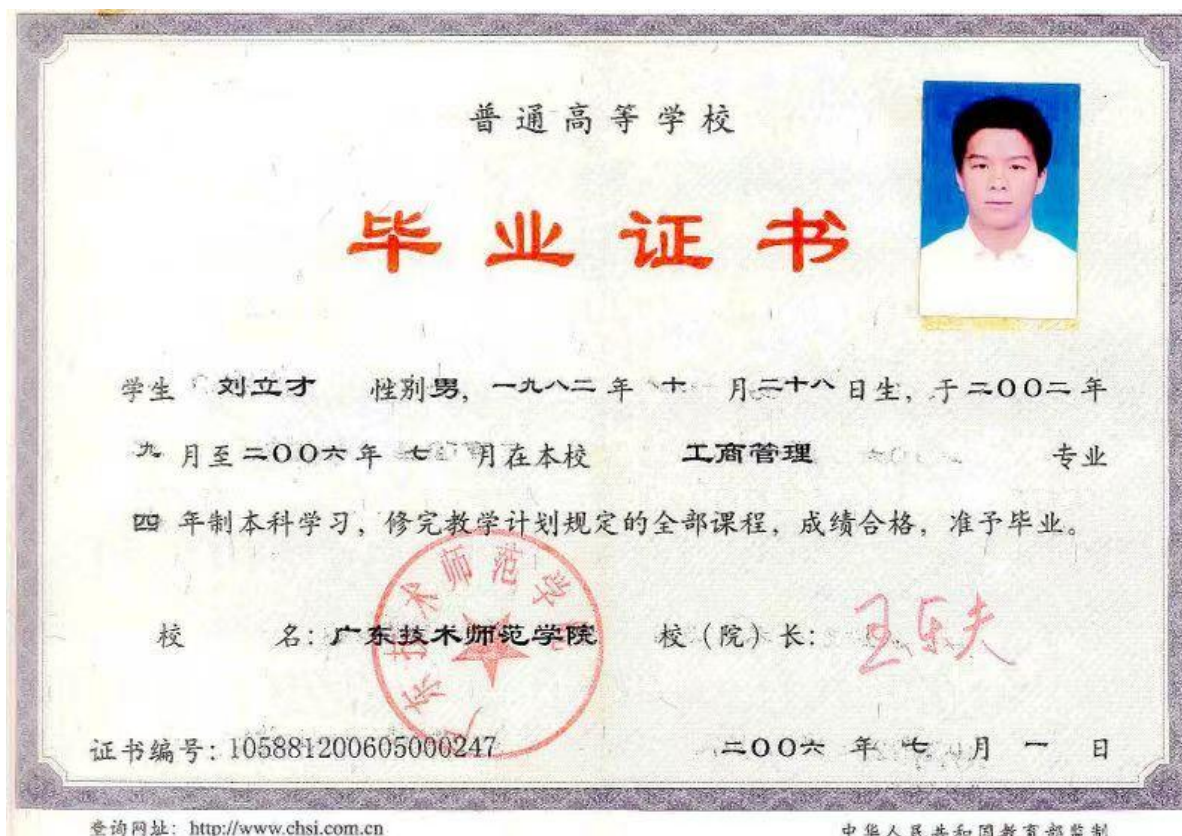 普通高等学校
毕业证书
学生 刘立才 性别男，一九八二年 十 月二十八日生，于二〇〇二年
九月至二〇〇六年 七 月在本校 工商管理 专业
四 年制本科学习，修完教学计划规定的全部课程，成绩合格，准予毕业。
广东技术师范学院
校 名：广东技术师范学院 校（院）长：王乐夫
证书编号：105881200605000247 二〇〇六 年 七 月 一 日
查询网址：http://www.chsi.com.cn 中华人民共和国教育部监制